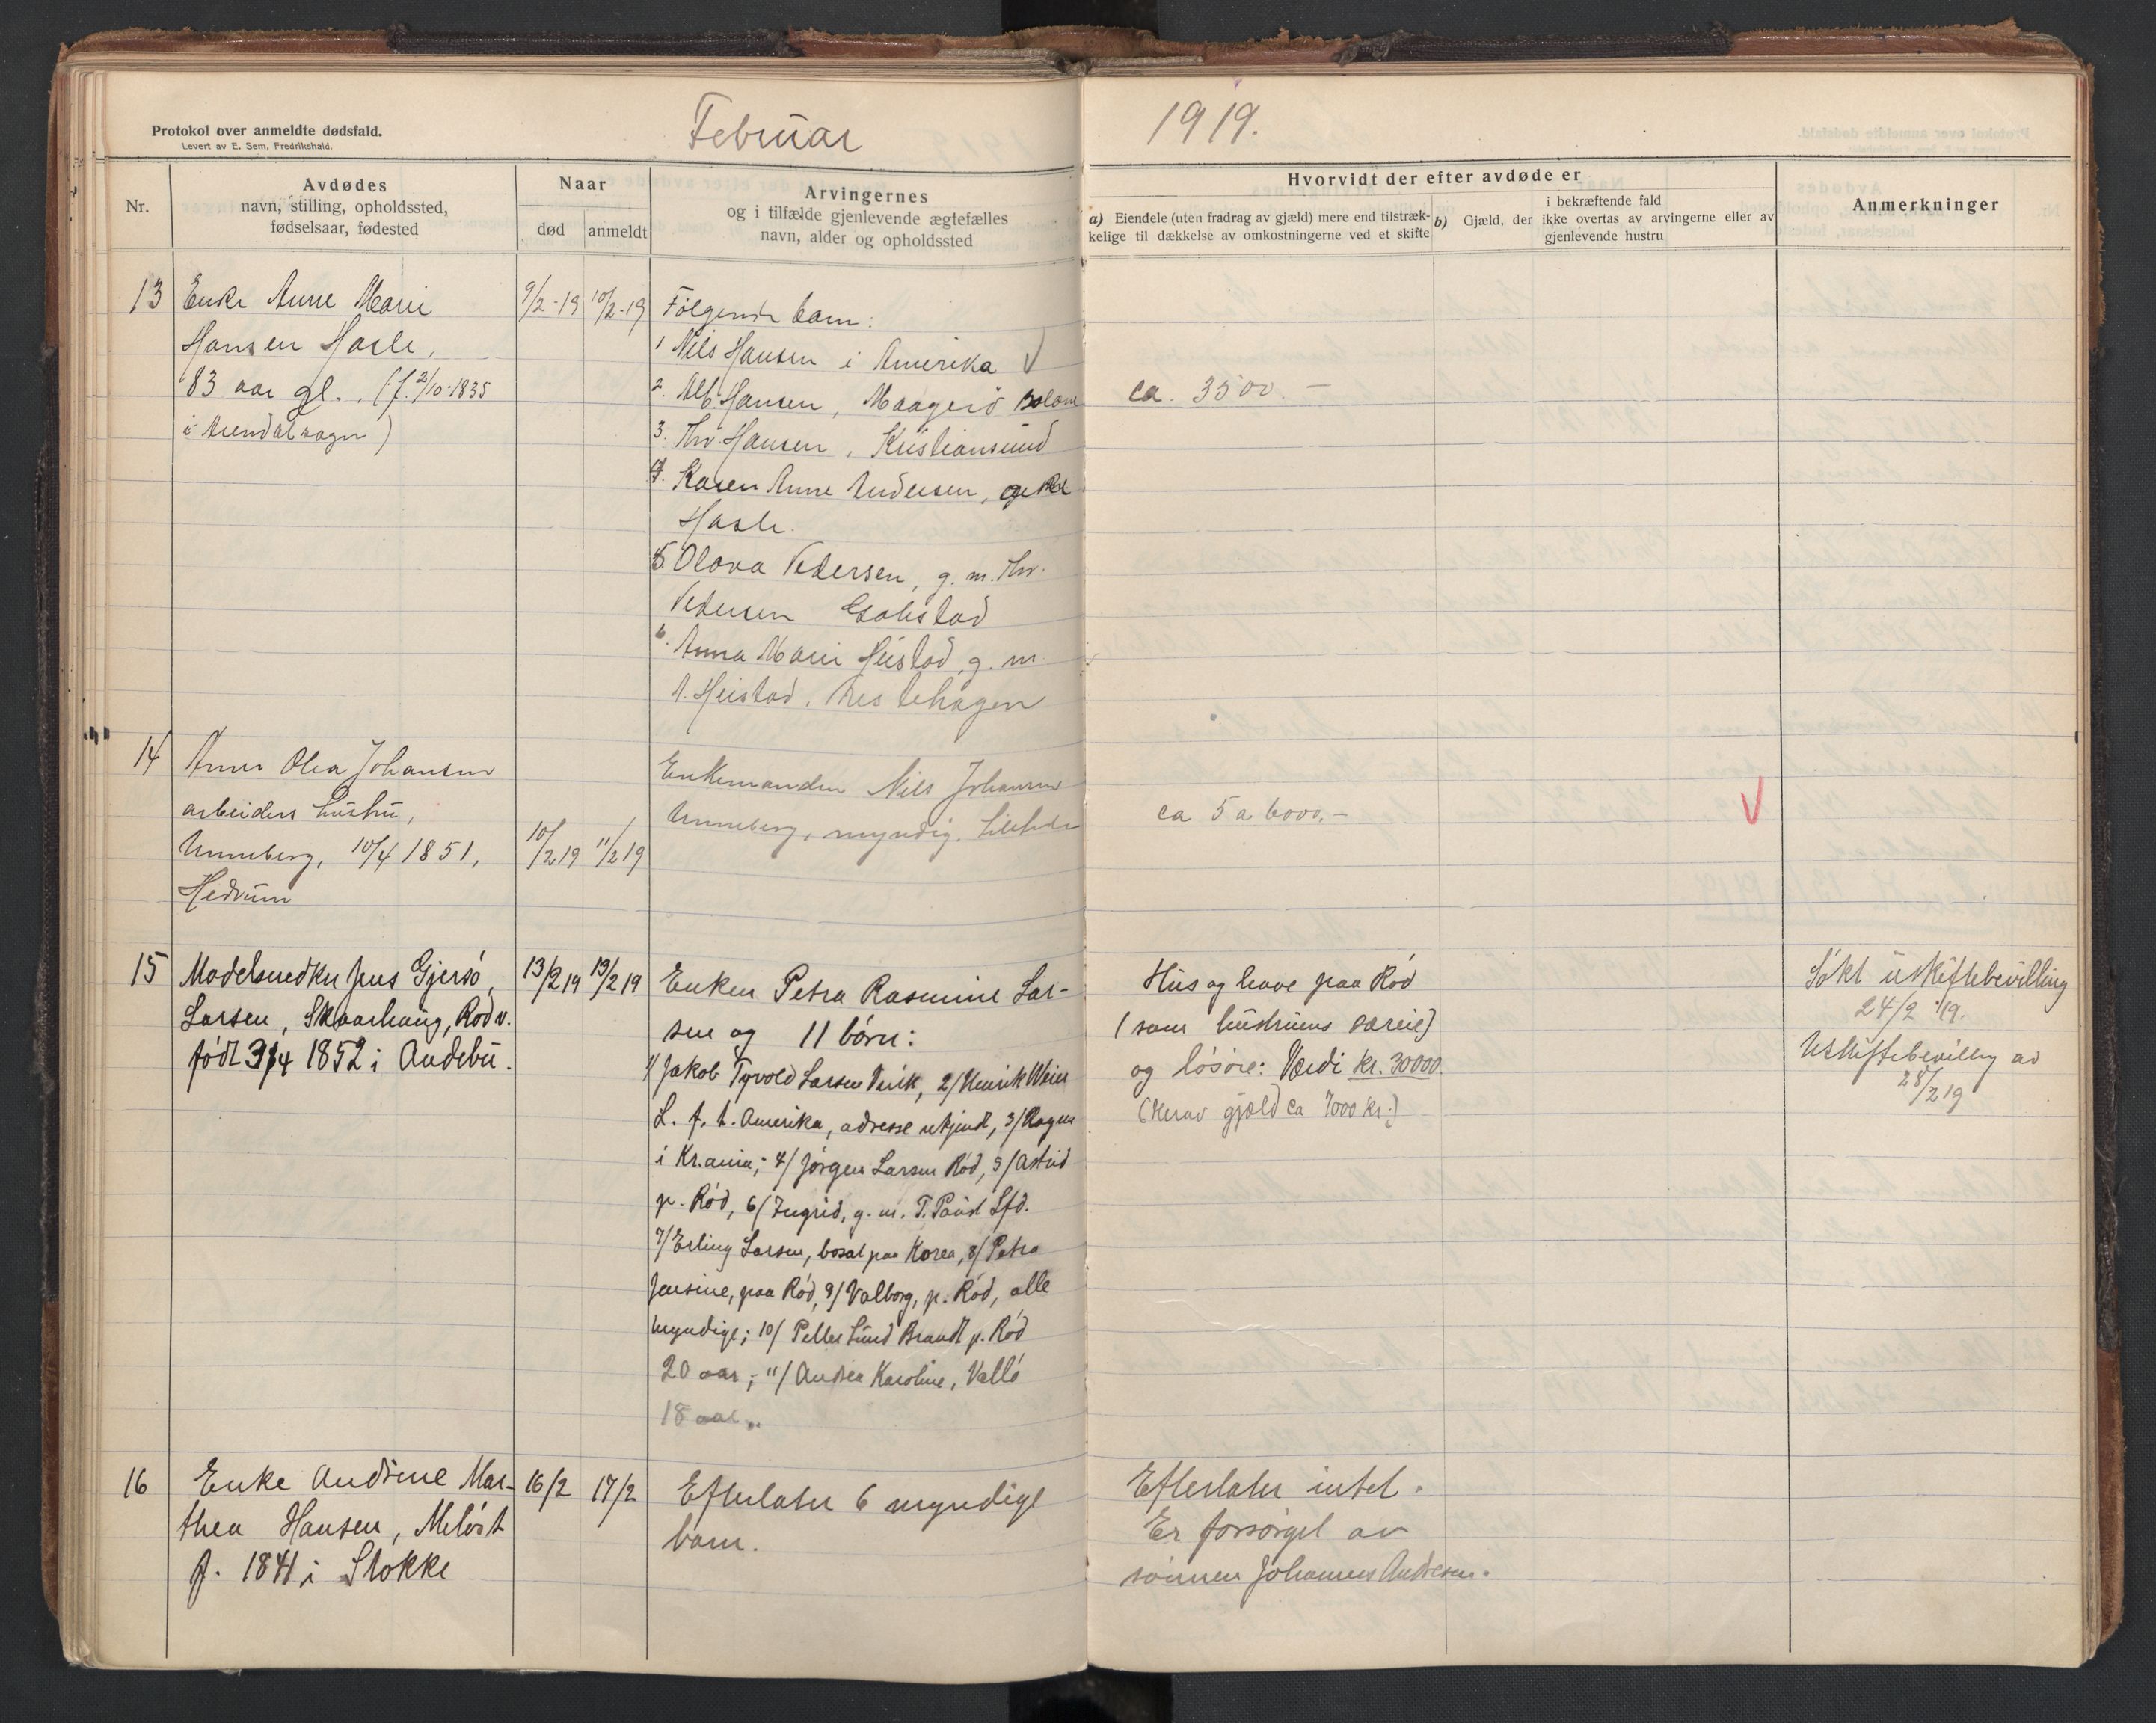 Protokol over anmeldte dødsfald.
Levert av E. Sem, Fredrikshald.
Februar
1919.
Nr.
Avdødes
navn, stilling, opholdssted,
fødselsaar, fødested
Naar
død
anmeldt
Arvingernes
og i tilfælde gjenlevende ægtefælles
navn, alder og opholdssted
Hvorvidt der efter avdøde er
a) Eiendele (uten fradrag av gjæld) mere end tilstræk-
kelige til dækkelse av omkostningerne ved et skifte
b) Gjæld, der
i bekræftende fald
ikke overtas av arvingerne eller av
gjenlevende hustru
Anmerkninger
13
Enke Anne Marie
Hansen Hasle,
83 aar gl., (f. 2/10-1835
i Arendal
9/2-19
10/2-19
Følgende barn:
1 Nils Hansen i Amerika V
2. Alb. Hansen, Maagerø
3. Thv. Hansen, Kristiansund
4. Karen Anne Andersen,
Hasle.
5. Olava Pedersen, g. m. Thv.
Pedersen Gokstad
6. Anna Marie Heistad, g. m.
A. Heistad,
ca. 3500.-
14
Anne Olea Johansen
arbeiders hustru,
Unneberg, 10/4 1851,
Hedrum
10/2 19
11/2 19
Enkemanden Nils Johansen
Unneberg, myndig.
ca 5 a 6000.-
V
15
Modelsnedker Jens Gjersø
Larsen, Skaarhaug, Rød v.
født 3/4 1852 i Andebu.
13/2 19
13/2 19
Enken Petra Rasmine Lar-
sen og 11 børn:
1/ Jakob Tyvold Larsen Virik, 2/ Henrik Weier
L. f. t. Amerika, adresse ukjendt, 3/ Ragna
i Kr.ania; 4/ Jørgen Larsen Rød, 5/ Astrid
p. Rød, 6/ Ingrid, g. m. T. Paust Sfd.
7/ Erling Larsen, bosat paa Korea, 8/ Petra
Jensine, paa Rød, 9/ Valborg, p. Rød, alle
myndige; 10/ Peller Lund Brandt p. Rød
20 aar; 11/ Andrea Karoline, Vallø
18 aar.
Hus og have paa Rød
(som hustruens særeie)
og løsøre: Værdi kr. 30000.
(Herav gjæld ca 7000 kr.)
Søkt uskiftebevilling
24/2 19.
Uskiftebevilling av
28/2 19
16
Enke Andrine Mar-
thea Hansen, Meløst
f. 1841 i Stokke
16/2
17/2
Efterlater 6 myndige
barn.
Efterlater intet.
Er forsørget av
sønnen Johannes Andresen.